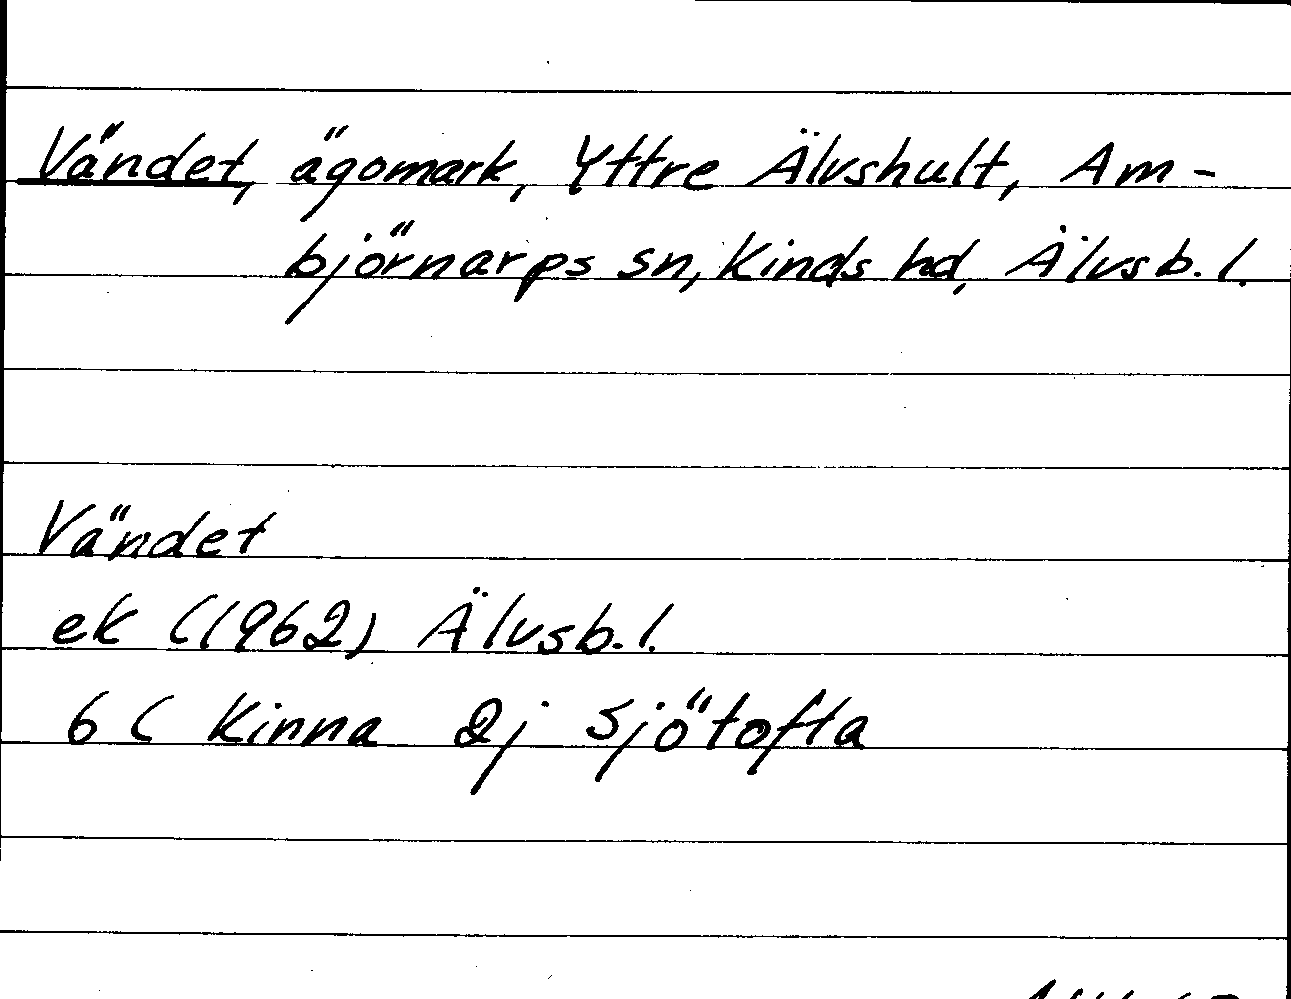 Vändet, ägomark, Yttre Älvshult, Am-
björnarps sn, Kinds hd, Älvsb. l.
Vändet
ek (1962) Älvsb. l.
6 C Kinna 2j Sjötofta